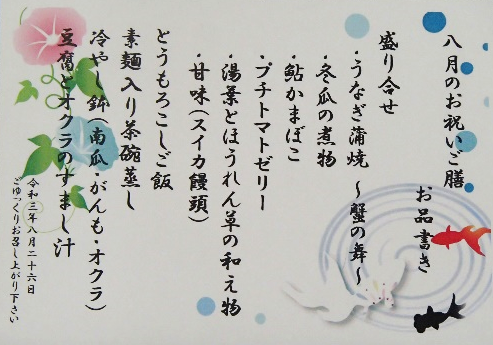 八月のお祝いご膳
お品書き
盛り合せ
・うなぎ蒲焼　～蟹の舞～
・冬瓜の煮物
・鮎かまぼこ
・プチトマトゼリー
・湯葉とほうれん草の和え物
・甘味(スイカ饅頭)
とうもろこしご飯
素麺入り茶碗蒸し
冷やし鉢(南瓜・がんも・オクラ)
豆腐とオクラのすまし汁
令和三年八月二十六日
ごゆっくりお召し上がり下さい